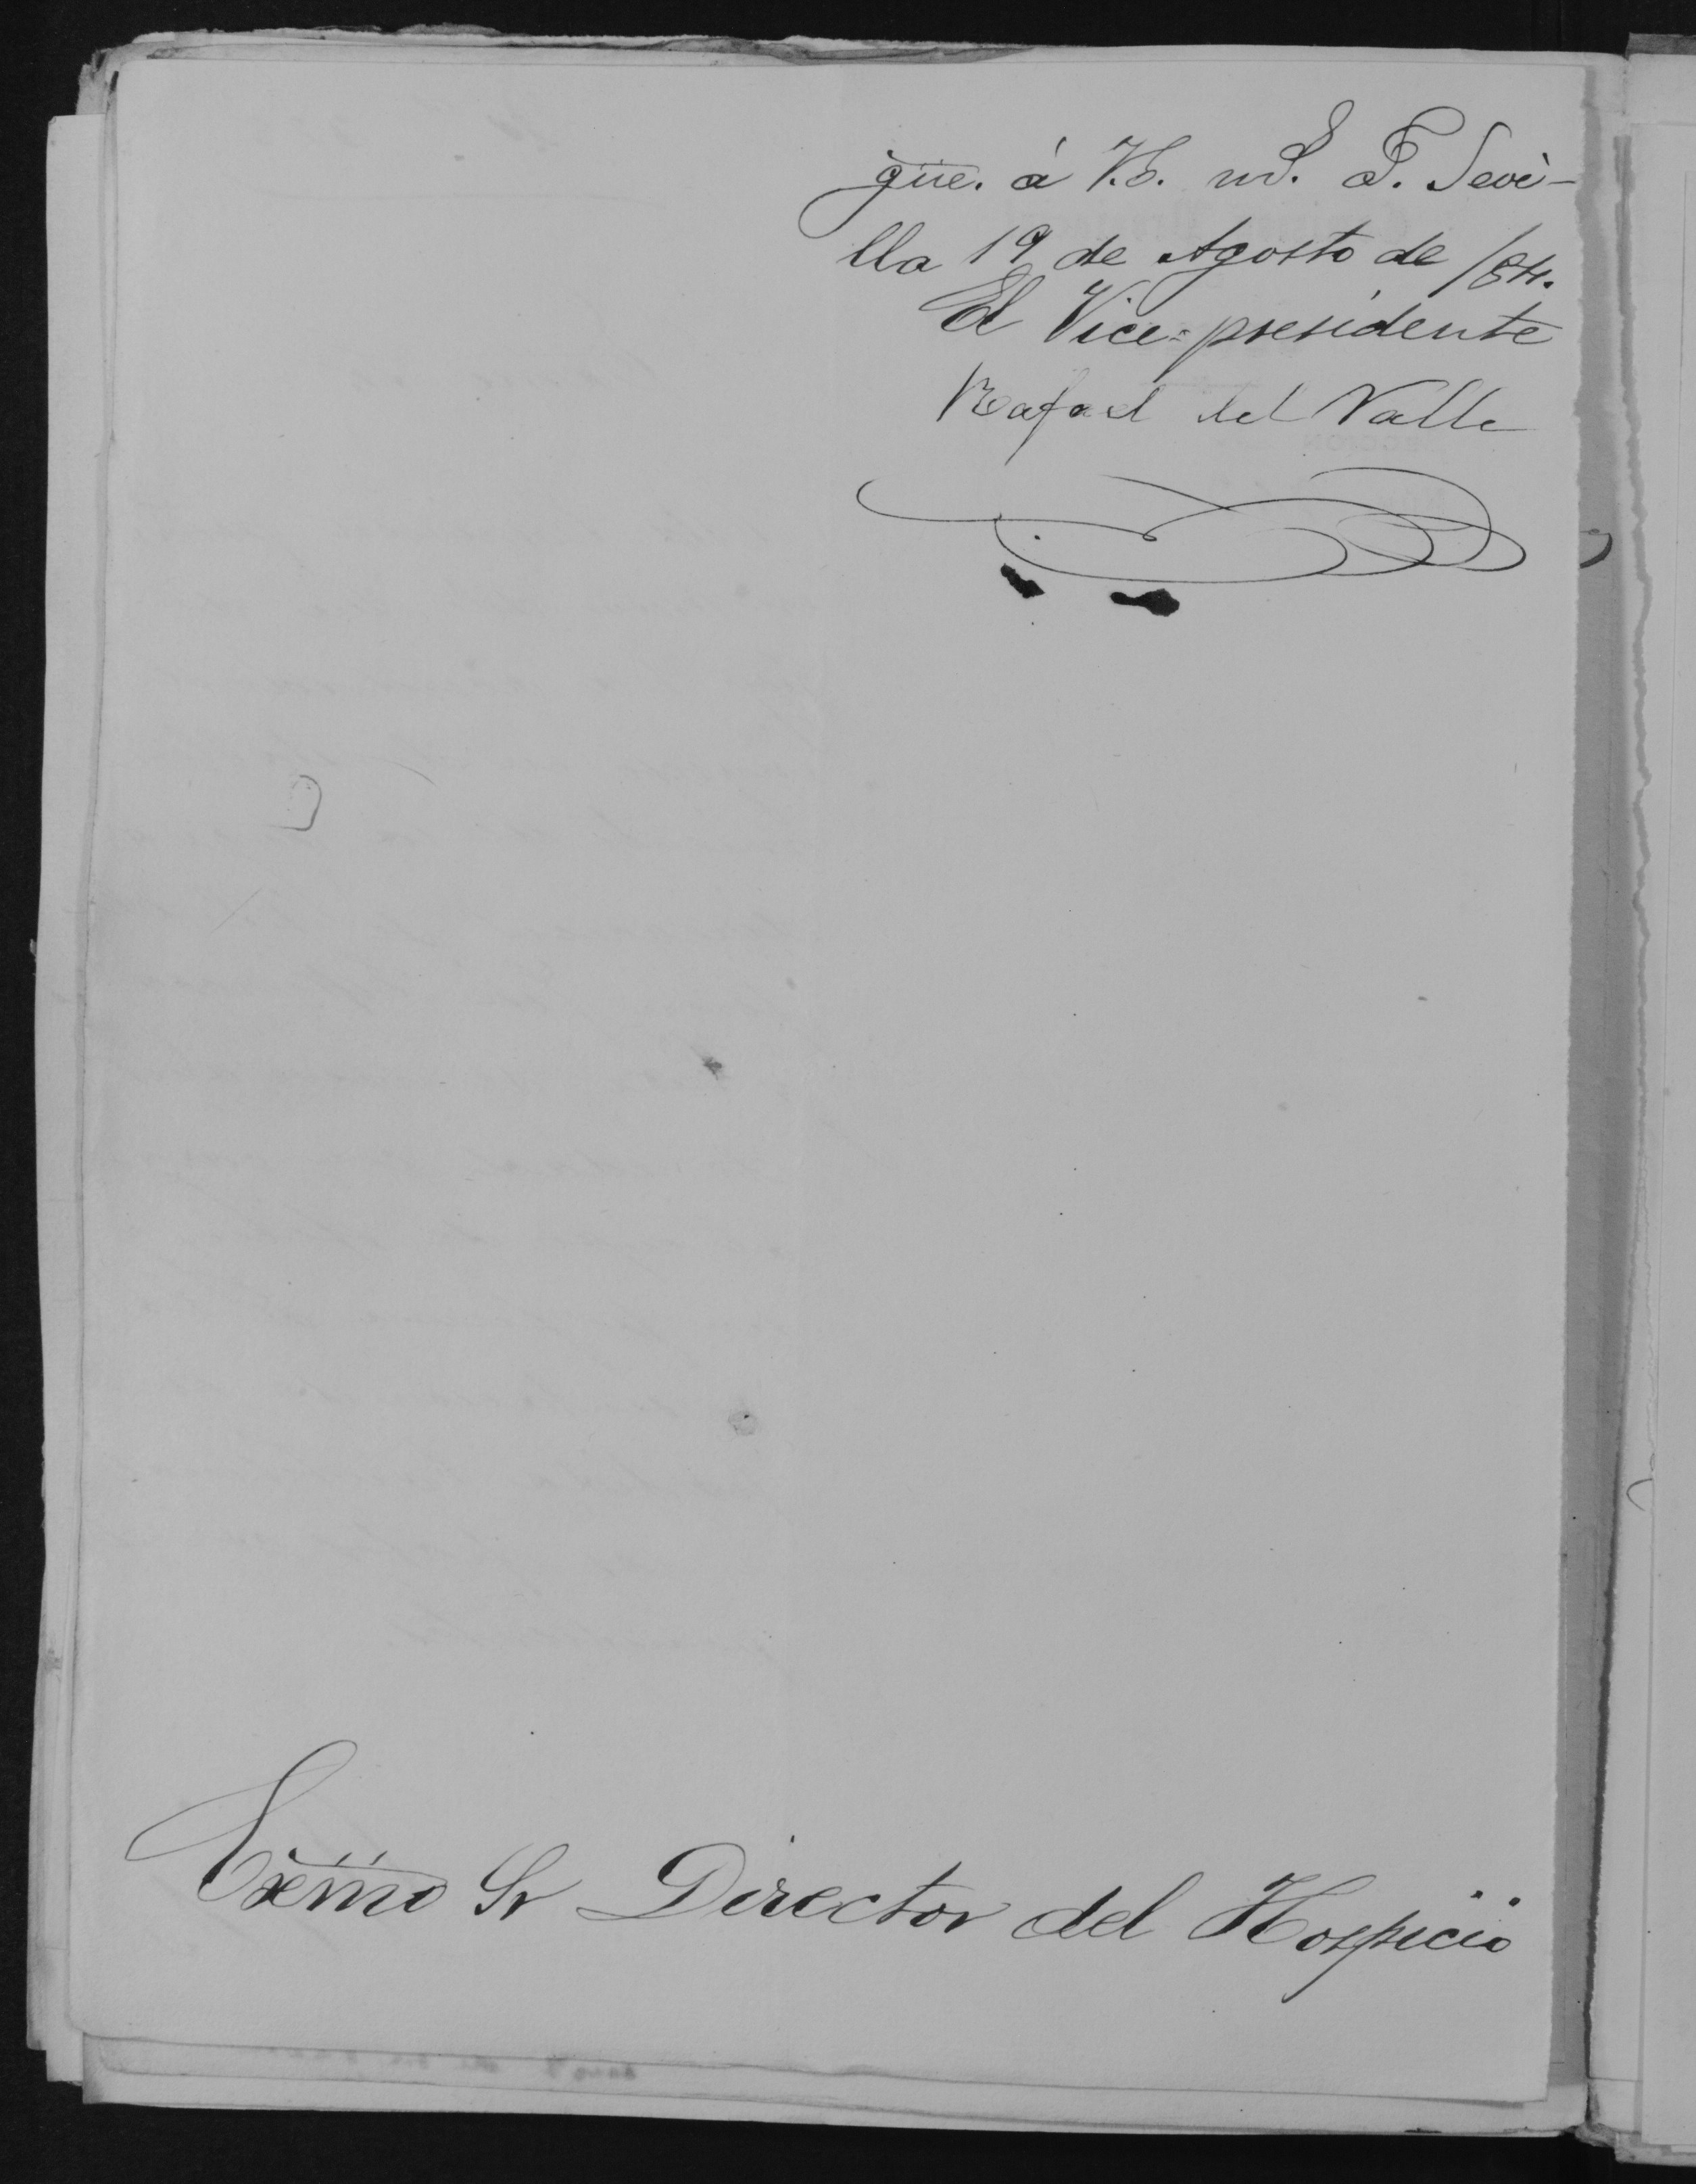 güe. á V.S. m.S. a.S. Sevi-
lla 19 de Agosto de /84.
El Vice-presidente
Rafael del Valle
Exmo Sr Director del Hospicio